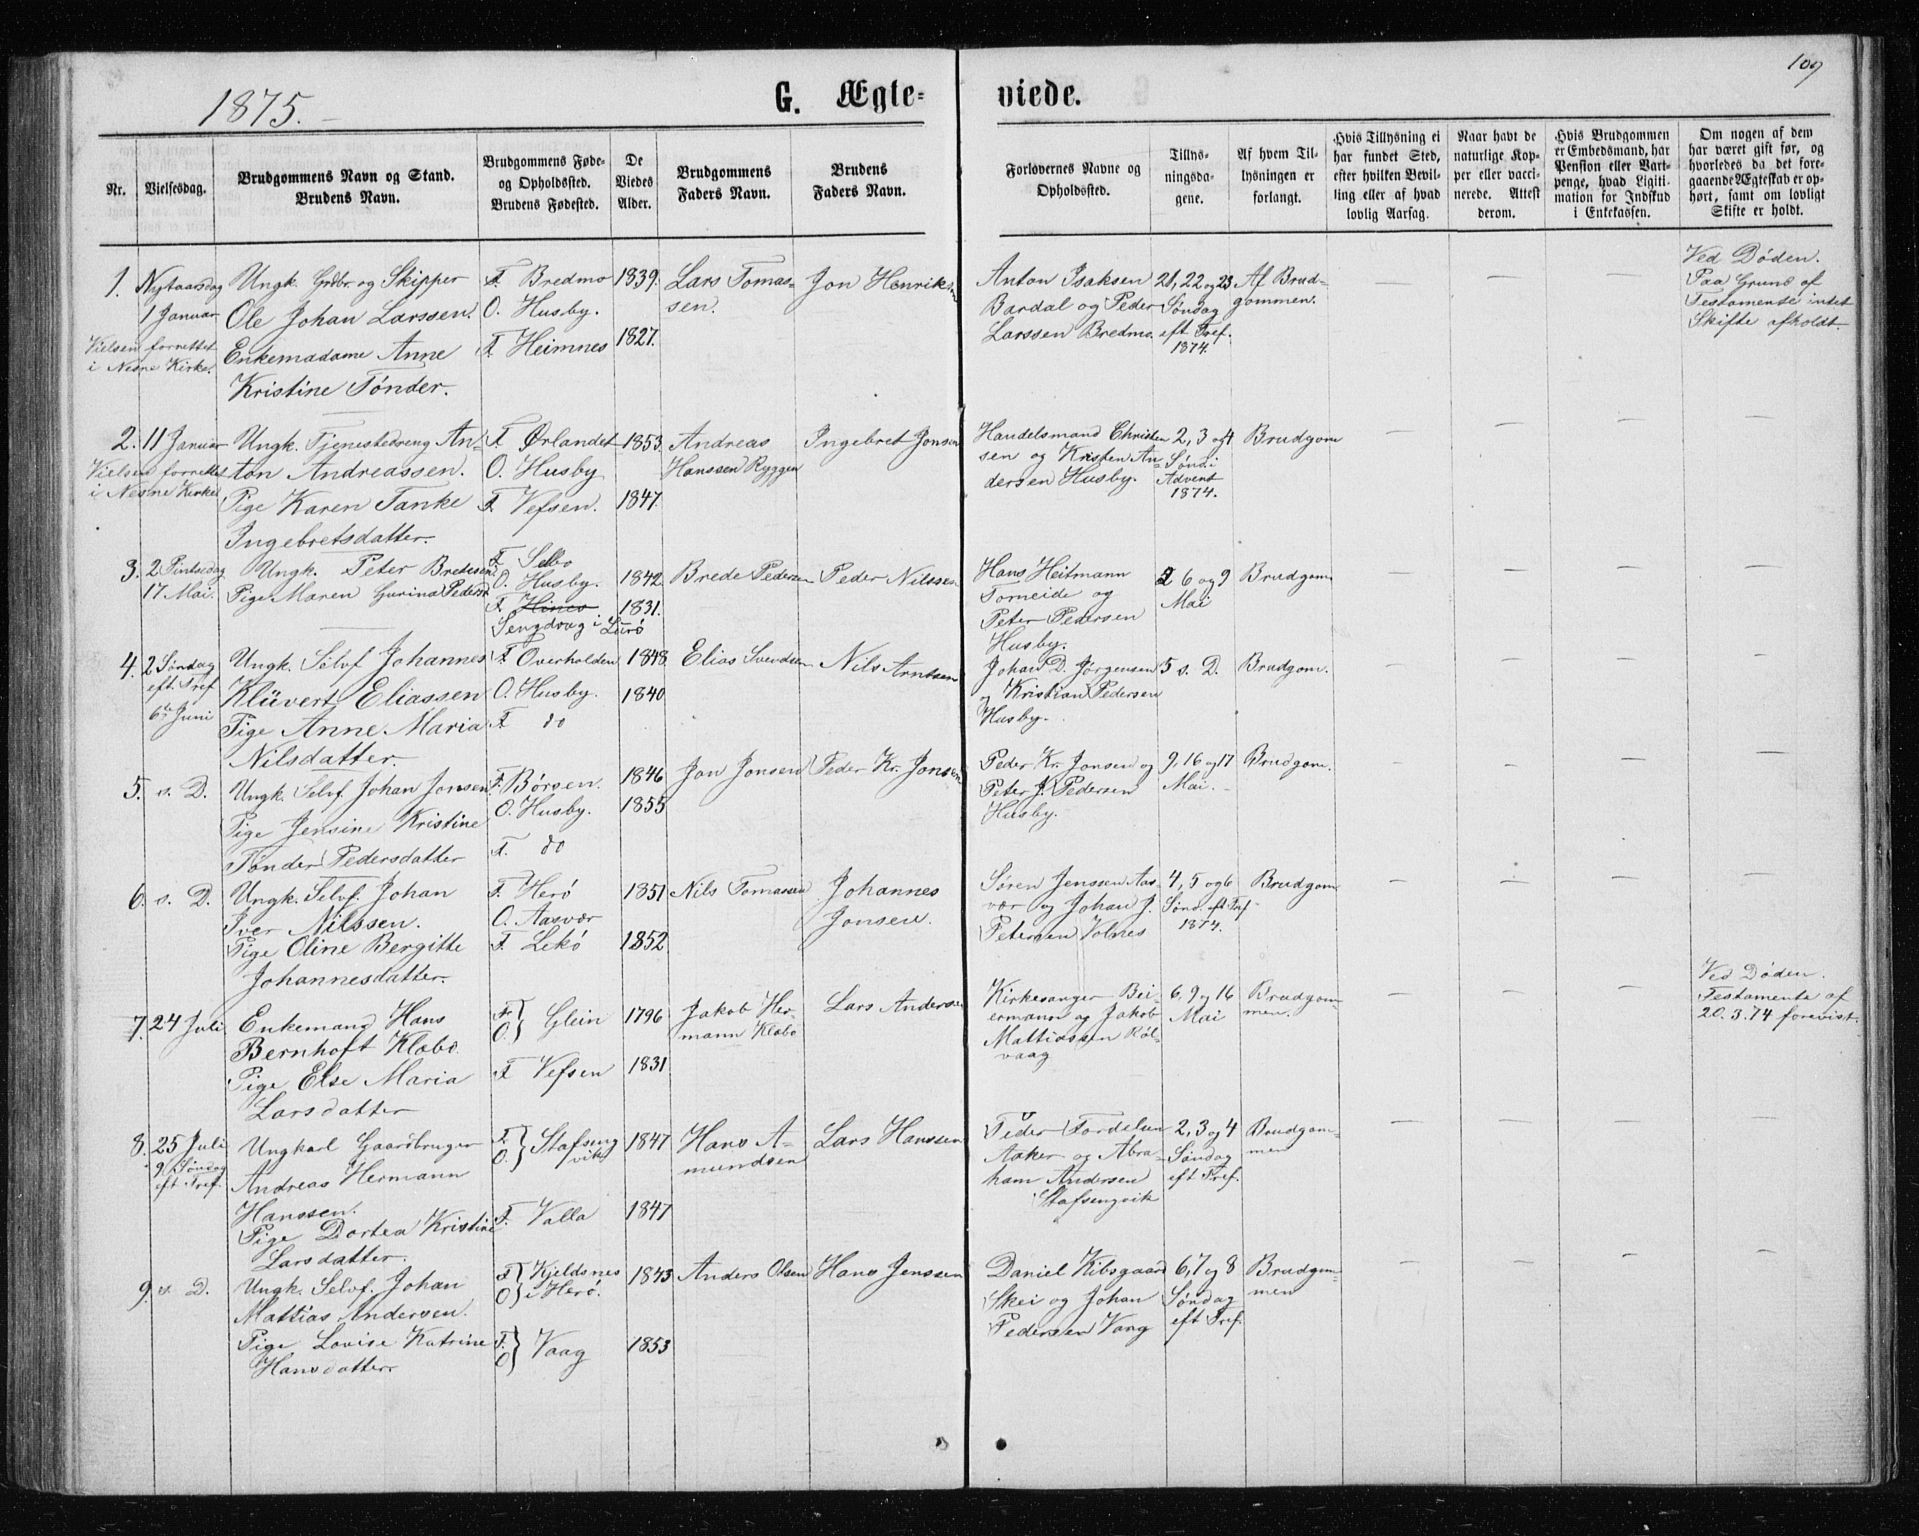 109
1875.
G. Ægte-
viede.
Nr.
Vielsesdag.
Brudgommens Navn og Stand.
Brudens Navn.
Brudgommens Føde-
og Opholdssted.
Brudens Fødested.
De
Viedes
Alder.
Brudgommens
Faders Navn.
Brudens
Faders Navn.
Forlovernes Navne og
Opholdssted.
Tillys-
ningsda-
gene.
Af hvem Til-
lysningen er
forlangt.
Hvis Tillysning ei
har fundet Sted,
efter hvilken Bevil-
ling eller af hvad
lovlig Aarsag.
Naar havt de
naturlige Kop-
per eller vacci-
nerede. Attest
derom.
Hvis Brudgommen
er Embedsmand, har
Pension eller Vart-
penge, hvad Ligiti-
mation for Indskud
i Enkekassen.
Om nogen af dem
har været gift før, og
hvorledes da det fore-
gaaende Ægteskab er op-
hørt, samt om lovligt
Skifte er holdt.
1.
Nytaarsdag
1 Januar
Vielsen forrettet
i Nesne Kirke.
Ungk. Grdbr. og Skipper
Ole Johan Larssen.
Enkemadame Anne
Kristine Tønder.
F. Bredmo
O. Husby.
F. Heimnes
1839.
1827.
Lars Tomas-
sen.
Jon Henriksen
Anton Isaksen
Bardal og Peder
Larssen Bredmo.
21, 22 og 23
Søndag
eft Tref.
1874.
Af Brud-
gommen.
—
—
—
Ved Døden.
Paa Grund af
Testamente intet
Skifte afholdt.
2.
11 Januar
Vielsen forrettet
i Nesne Kirke
Ungk. Tjenestedreng An-
ton Andreassen.
Pige Karen Tanke
Ingebretsdatter.
F. Ørlandet
O. Husby
F. Vefsen.
1853.
1847.
Andreas
Hanssen Ryggen
Ingebret Jonsen
Handelsmand Christen
sen og Kristen An-
dersen Husby.
2, 3 og 4
Sønd. i
Advent
1874.
Brudgom
—
—
—
—
3.
2 Pintsedag
17 Mai.
Ungk. Peter Bredesen
Pige Maren Gurina Pedersd
F. Selbo
O. Husby.
F.
Sengdrag i Lurø
1842
1831.
Brede Pedersen
Peder Nilssen
Hans Heitmann
Torneide og
Peter Pedersen
Husby.
2 6 og 9
Mai
Brudgom
—
—
—
—
4.
2 Søndag
eft. Tref
6te Juni
Ungk. Selvf Johannes
Klüvert Eliassen
Pige Anne Maria
Nilsdatter.
F. Overholden
O. Husby.
F. do
1848.
1840
Elias Svendsen
Nils Arntsen
Johan D. Jørgensen
og Kristian Pedersen
Husby.
5 s. D.
Brudgom.
—
—
—
—
5.
s. D.
Ungk. Selvf. Johan Jonsen
Pige Jensine Kristine
Tønder Pedersdatter
F. Børsen.
O. Husby.
F. do
1846
1855
Jon Jonsen
Peder Kr. Jonsen
Peder Kr. Jonsen og
Peter J. Pedersen
Husby.
9, 16 og 17
Mai.
Brudgom.
—
—
—
—
6.
s. D.
Ungk. Selvf. Johan
Iver Nilssen.
Pige Oline Bergitte
Johannesdatter.
F. Herø
O. Aasvær
F. Lekø
1851
1852
Nils Tomassen
Johannes
Jonsen.
Søren Jenssen Aas-
vær og Johan J.
Petersen Volnes
4, 5 og 6
Sønd. eft Tref
1874.
Brudgom-
men
—
—
—
—
7.
24 Juli
Enkemand Hans
Bernhoft Klæbo.
Pige Else Maria
Larsdatter
F. O. } Glein
F. Vefsen
1796
1831
Jakob Her-
mann Klæbo
Lars Andersen
Kirkesanger Bei-
ermann og Jakob
Mattiassen Røl-
vaag
6, 9 og 16
Mai
Brudgom-
men.
—
—
—
Ved Døden.
Testamente af
20.3.74 forevist.
8.
25 Juli
9. Søndag
eft. Tref.
Ungkarl Gaardbruger
Andreas Hermann
Hanssen.
Pige Dortea Kristine
Larsdatter.
F. O. } Stafseng
vik
F. Valla
1847
1847
Hans A-
mundsen
Lars Hanssen
Peder Tordelsen
Aaker og Abra-
ham Andersen
Stafsengvik
2, 3 og 4
Søndag
eft Tref.
Brudgom-
men
—
—
—
—
9.
s. D.
Ungk. Selvf. Johan
Mattias Andersen.
Pige Lovise Katrine
Hansdatter.
F. O. } Kjeldsnes
i Herø.
F. O. } Vaag
1843
1853
Anders Olsen
Hans Jenssen
Daniel Kibsgaard
Skei og Johan
Pedersen Vang
6, 7 og 8
Søndag
eft Tref.
Brudgom-
men
—
—
—
—